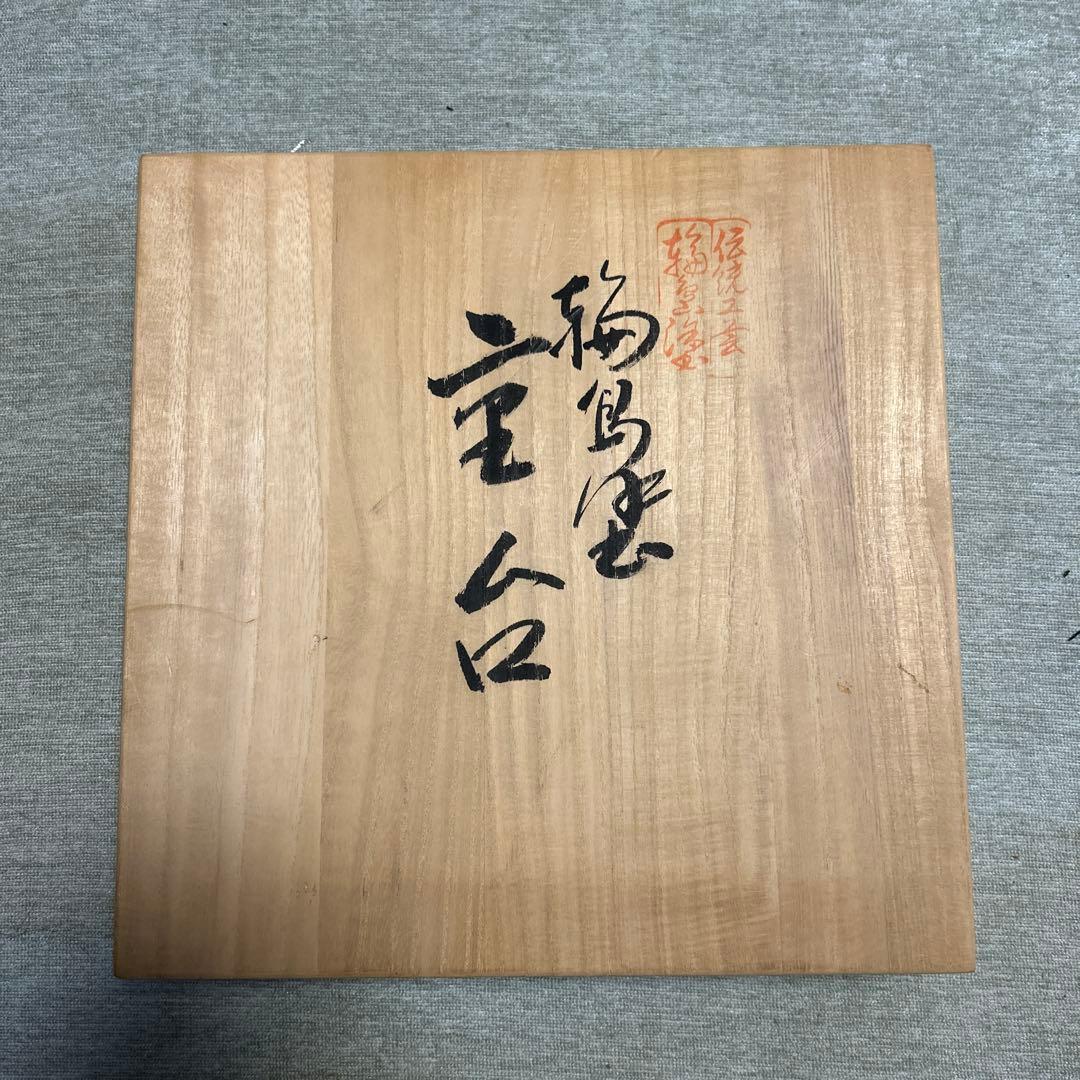 伝統工芸
輪島塗
輪島塗
重台